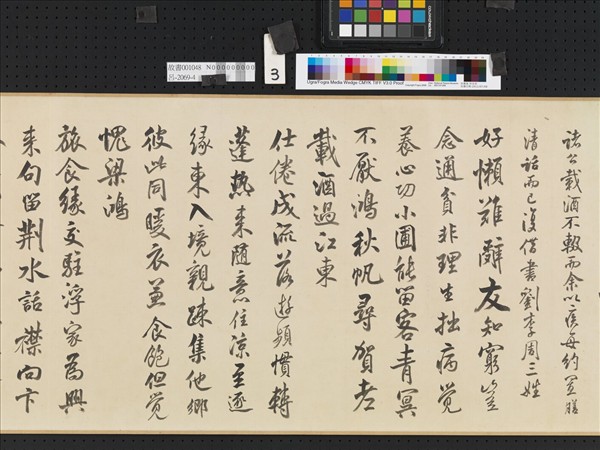 故書001048 N000000000
呂-2069-4
3
Ugra/Fogra Media Wedge CMYK TIFF V3.0 Proof
諸公載酒不輟而余以疾每約置膳
清話而已復借書劉李周三姓
好懶難辭友知窮豈
念通貧非理生拙病覺
養心功小圃能留客青冥
不厭鴻秋帆尋賀老
載酒過江東
仕倦成流落遊頻慣轉
蓬熱來隨意住涼至逐
緣東入境親疎集他鄉
彼此同暖衣兼食飽但覺
愧梁鴻
旅食緣交駐浮家為興
來句留荊水話襟向卞